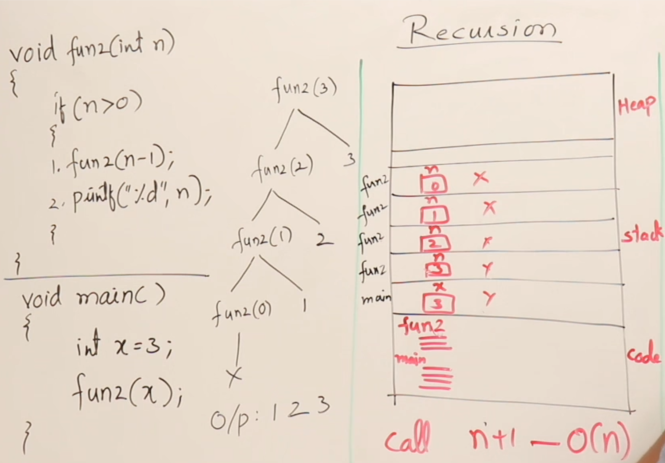 void fun2(int n)
{
if (n>0)
{
1. fun2(n-1);
2. printf("%d", n);
}
}
void main()
{
int x=3;
fun2(x);
}
fun2(3)
fun2(2) 3
fun2(1) 2
fun2(0) 1
X
O/p: 1 2 3
Recursion
Heap
fun2 n 0 X
fun2 n 1 X
fun2 n 2 X
fun2 n 3 Y
main x 3 Y
stack
fun2
main
code
call n+1 — O(n)